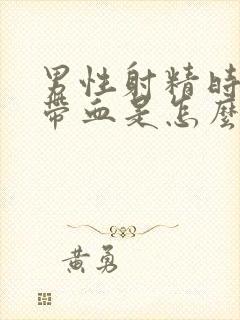 男性射精時
帶血是怎麼
黃勇